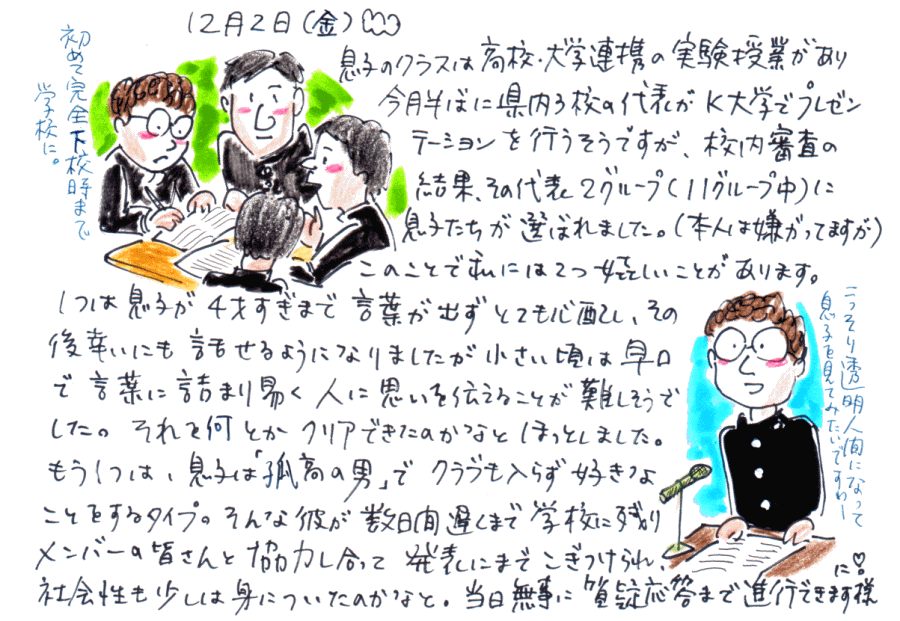 12月2日(金)
初めて完全下校時まで
学校に。
息子のクラスは高校・大学連携の実験授業があり
今月半ばに県内3校の代表がK大学でプレゼン
テーションを行うそうですが、校内審査の
結果、その代表2グループ(11グループ中)に
息子たちが選ばれました。(本人は嫌がってますが)
このことで私には2つ嬉しいことがあります。
1つは息子が4才すぎまで言葉が出ずとても心配し、その
後幸いにも話せるようになりましたが小さい頃は早口
で言葉に詰まり易く人に思いを伝えることが難しそうで
した。それを何とかクリアできたのかなとほっとしました。
もう1つは、息子は「孤高の男」でクラブも入らず好きな
ことをするタイプ。そんな彼が数日間遅くまで学校に残り
メンバーの皆さんと協力し合って発表にまでこぎつけられ、
社会性も少しは身についたのかなと。当日無事に質疑応答まで進行できます様
に!
こっそり透明人間になって
息子を見てみたいですわー